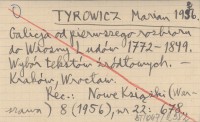 TYROWICZ Marian 1956.
Galicja od pierwszego rozbioru
do Wiosny Ludów 1772-1849.
Wybór tekstów źródłowych. -
Kraków, Wrocław.
Rec.: Nowe Książki (War-
szawa) 8 (1956), nr 22: 678.